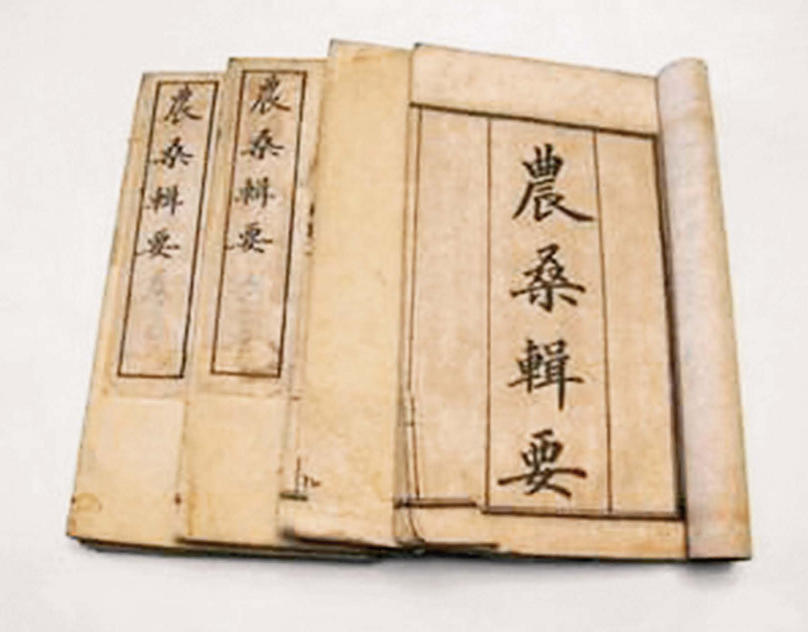 農桑輯要
農桑輯要
農桑輯要